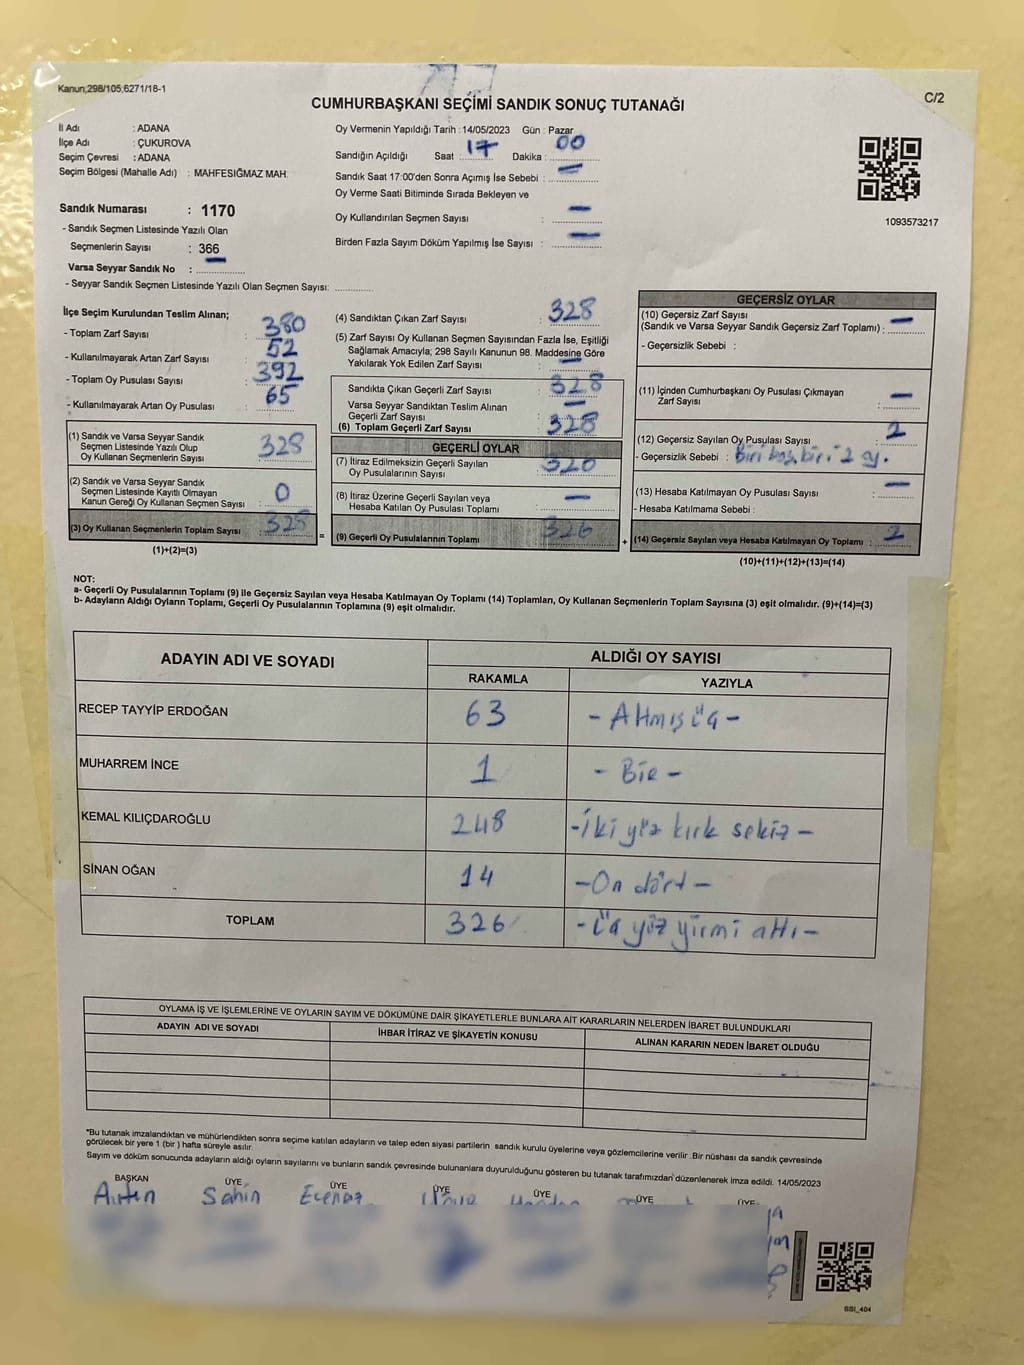 Kanun;298/105;6271/18-1
C/2
CUMHURBAŞKANI SEÇİMİ SANDIK SONUÇ TUTANAĞI
İl Adı : ADANA
İlçe Adı : ÇUKUROVA
Seçim Çevresi : ADANA
Seçim Bölgesi (Mahalle Adı) : MAHFESIĞMAZ MAH.
Sandık Numarası : 1170
- Sandık Seçmen Listesinde Yazılı Olan
Seçmenlerin Sayısı : 366
Varsa Seyyar Sandık No : —
- Seyyar Sandık Seçmen Listesinde Yazılı Olan Seçmen Sayısı:
Oy Vermenin Yapıldığı Tarih : 14/05/2023 Gün : Pazar
Sandığın Açıldığı Saat 17 Dakika : 00
Sandık Saat 17:00'den Sonra Açımış İse Sebebi : —
Oy Verme Saati Bitiminde Sırada Bekleyen ve
Oy Kullandırılan Seçmen Sayısı : —
Birden Fazla Sayım Döküm Yapılmış İse Sayısı : —
1093573217
İlçe Seçim Kurulundan Teslim Alınan;
- Toplam Zarf Sayısı : 380
- Kullanılmayarak Artan Zarf Sayısı : 52
- Toplam Oy Pusulası Sayısı : 392
- Kullanılmayarak Artan Oy Pusulası : 65
(1) Sandık ve Varsa Seyyar Sandık
Seçmen Listesinde Yazılı Olup
Oy Kullanan Seçmenlerin Sayısı : 328
(2) Sandık ve Varsa Seyyar Sandık
Seçmen Listesinde Kayıtlı Olmayan
Kanun Gereği Oy Kullanan Seçmen Sayısı : 0
(3) Oy Kullanan Seçmenlerin Toplam Sayısı : 328
(1)+(2)=(3)
(4) Sandıktan Çıkan Zarf Sayısı : 328
(5) Zarf Sayısı Oy Kullanan Seçmen Sayısından Fazla İse, Eşitliği
Sağlamak Amacıyla; 298 Sayılı Kanunun 98. Maddesine Göre
Yakılarak Yok Edilen Zarf Sayısı : —
Sandıkta Çıkan Geçerli Zarf Sayısı : 328
Varsa Seyyar Sandıktan Teslim Alınan
Geçerli Zarf Sayısı : —
(6) Toplam Geçerli Zarf Sayısı : 328
GEÇERLİ OYLAR
(7) İtiraz Edilmeksizin Geçerli Sayılan
Oy Pusulalarının Sayısı :
(8) İtiraz Üzerine Geçerli Sayılan veya
Hesaba Katılan Oy Pusulası Toplamı : —
= (9) Geçerli Oy Pusulalarının Toplamı : 326
GEÇERSİZ OYLAR
(10) Geçersiz Zarf Sayısı
(Sandık ve Varsa Seyyar Sandık Geçersiz Zarf Toplamı) : —
- Geçersizlik Sebebi :
(11) İçinden Cumhurbaşkanı Oy Pusulası Çıkmayan
Zarf Sayısı : —
(12) Geçersiz Sayılan Oy Pusulası Sayısı : 2
- Geçersizlik Sebebi : Biri boş, biri 2 oy.
(13) Hesaba Katılmayan Oy Pusulası Sayısı : —
- Hesaba Katılmama Sebebi :
+ (14) Geçersiz Sayılan veya Hesaba Katılmayan Oy Toplamı : 2
(10)+(11)+(12)+(13)=(14)
NOT:
a- Geçerli Oy Pusulalarının Toplamı (9) ile Geçersiz Sayılan veya Hesaba Katılmayan Oy Toplamı (14) Toplamları, Oy Kullanan Seçmenlerin Toplam Sayısına (3) eşit olmalıdır. (9)+(14)=(3)
b- Adayların Aldığı Oyların Toplamı, Geçerli Oy Pusulalarının Toplamına (9) eşit olmalıdır.
ADAYIN ADI VE SOYADI ALDIĞI OY SAYISI
RAKAMLA YAZIYLA
RECEP TAYYİP ERDOĞAN 63 - Altmış üç -
MUHARREM İNCE 1 - Bir -
KEMAL KILIÇDAROĞLU 248 - İki yüz kırk sekiz -
SİNAN OĞAN 14 - On dört -
TOPLAM 326 - Üç yüz yirmi altı -
OYLAMA İŞ VE İŞLEMLERİNE VE OYLARIN SAYIM VE DÖKÜMÜNE DAİR ŞİKAYETLERLE BUNLARA AİT KARARLARIN NELERDEN İBARET BULUNDUKLARI
ADAYIN ADI VE SOYADI İHBAR İTİRAZ VE ŞİKAYETİN KONUSU ALINAN KARARIN NEDEN İBARET OLDUĞU
*Bu tutanak imzalandıktan ve mühürlendikten sonra seçime katılan adayların ve talep eden siyasi partilerin sandık kurulu üyelerine veya gözlemcilerine verilir. Bir nüshası da sandık çevresinde
görülecek bir yere 1 (bir ) hafta süreyle asılır.
Sayım ve döküm sonucunda adayların aldığı oyların sayılarını ve bunların sandık çevresinde bulunanlara duyurulduğunu gösteren bu tutanak tarafımızdan düzenlenerek imza edildi. 14/05/2023
BAŞKAN ÜYE ÜYE ÜYE ÜYE ÜYE ÜYE
Şahin Ecenaz
SSI_404